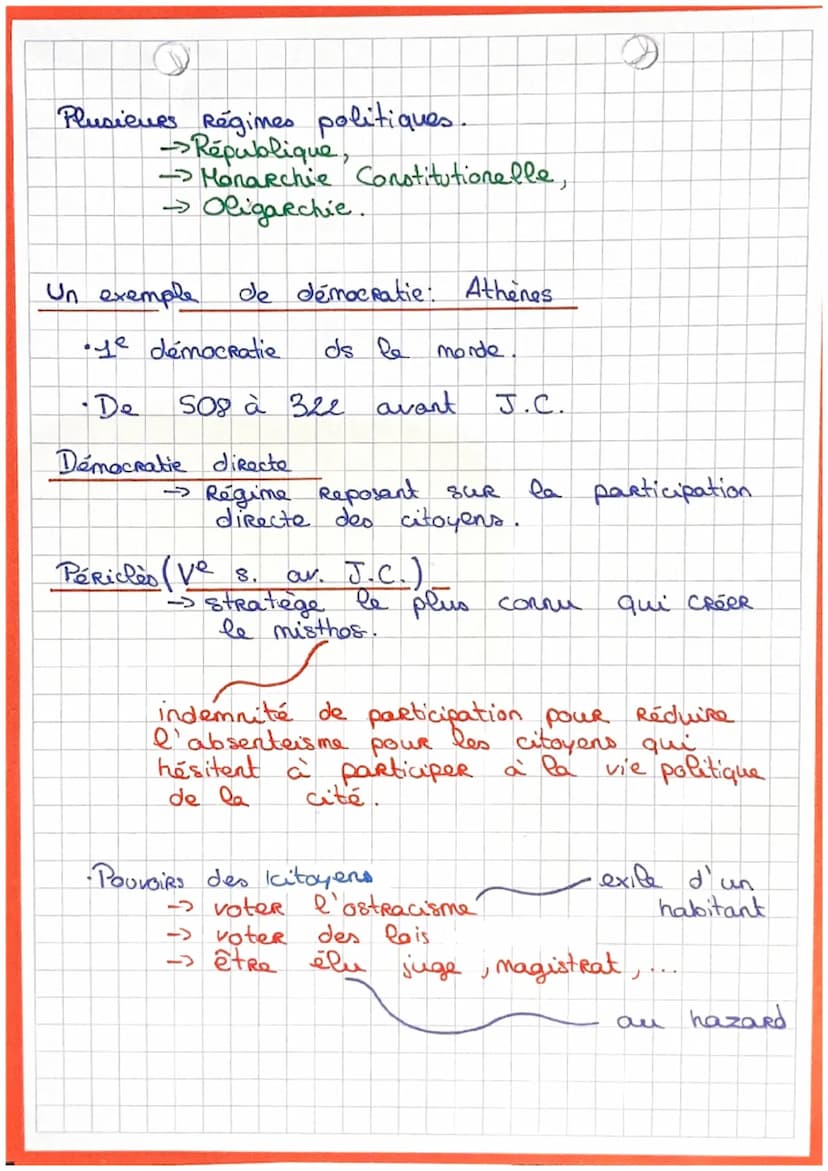 Plusieurs Régimes politiques.
→ République,
→ Monarchie Constitutionelle,
→ Oligarchie.
Un exemple de démocratie: Athènes
• 1e démocratie ds le monde.
• De 508 à 322 avant J.C.
Démocratie directe
→ Régime Reposant sur la participation
directe des citoyens.
Périclès (Ve s. av. J.C.)
→ stratège le plus connu qui créer
le misthos.
indemnité de participation pour Réduire
l'absenteisme pour les citoyens qui
hésitent à participer à la vie politique
de la cité.
• Pouvoirs des citoyens
→ voter l'ostracisme
exile d'un
habitant
→ voter des lois
→ être élu juge, magistrat, ...
au hazard